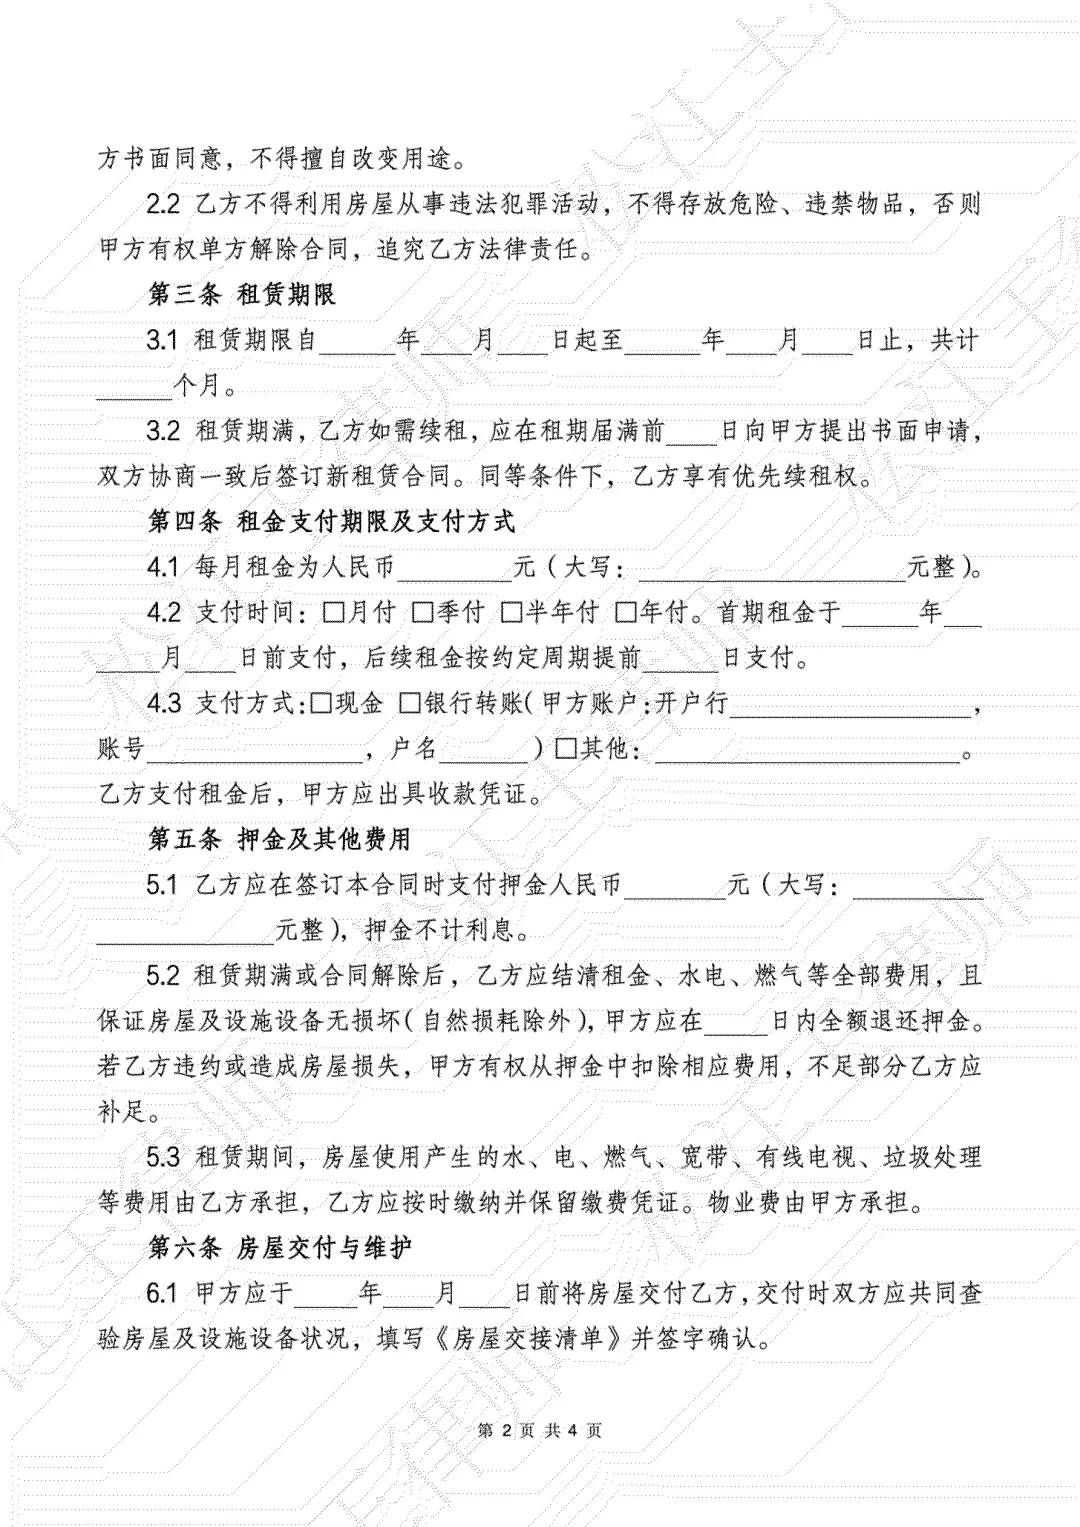 方书面同意，不得擅自改变用途。
2.2 乙方不得利用房屋从事违法犯罪活动，不得存放危险、违禁物品，否则
甲方有权单方解除合同，追究乙方法律责任。
第三条 租赁期限
3.1 租赁期限自______年____月____日起至______年____月____日止，共计
______个月。
3.2 租赁期满，乙方如需续租，应在租期届满前____日向甲方提出书面申请，
双方协商一致后签订新租赁合同。同等条件下，乙方享有优先续租权。
第四条 租金支付期限及支付方式
4.1 每月租金为人民币_________元（大写：_____________________元整）。
4.2 支付时间：□月付 □季付 □半年付 □年付。首期租金于______年___
_____月____日前支付，后续租金按约定周期提前______日支付。
4.3 支付方式：□现金 □银行转账（甲方账户：开户行___________________，
账号_________________，户名_______）□其他：________________________。
乙方支付租金后，甲方应出具收款凭证。
第五条 押金及其他费用
5.1 乙方应在签订本合同时支付押金人民币________元（大写：__________
______________元整），押金不计利息。
5.2 租赁期满或合同解除后，乙方应结清租金、水电、燃气等全部费用，且
保证房屋及设施设备无损坏（自然损耗除外），甲方应在_____日内全额退还押金。
若乙方违约或造成房屋损失，甲方有权从押金中扣除相应费用，不足部分乙方应
补足。
5.3 租赁期间，房屋使用产生的水、电、燃气、宽带、有线电视、垃圾处理
等费用由乙方承担，乙方应按时缴纳并保留缴费凭证。物业费由甲方承担。
第六条 房屋交付与维护
6.1 甲方应于_____年____月____日前将房屋交付乙方，交付时双方应共同查
验房屋及设施设备状况，填写《房屋交接清单》并签字确认。
第 2 页 共 4 页